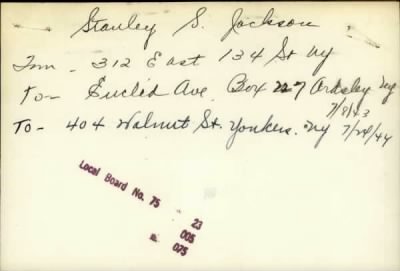 Stanley S. Jackson
Frm - 312 East 134 St NY
To - Euclid Ave. Box 227 Ardsley NY
7/9/43
To - 404 Walnut St. Yonkers. NY 7/24/44
Local Board No. 75
23
005
075